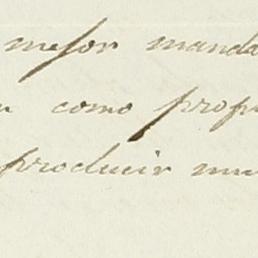 mejor manda
como prop
producir mu